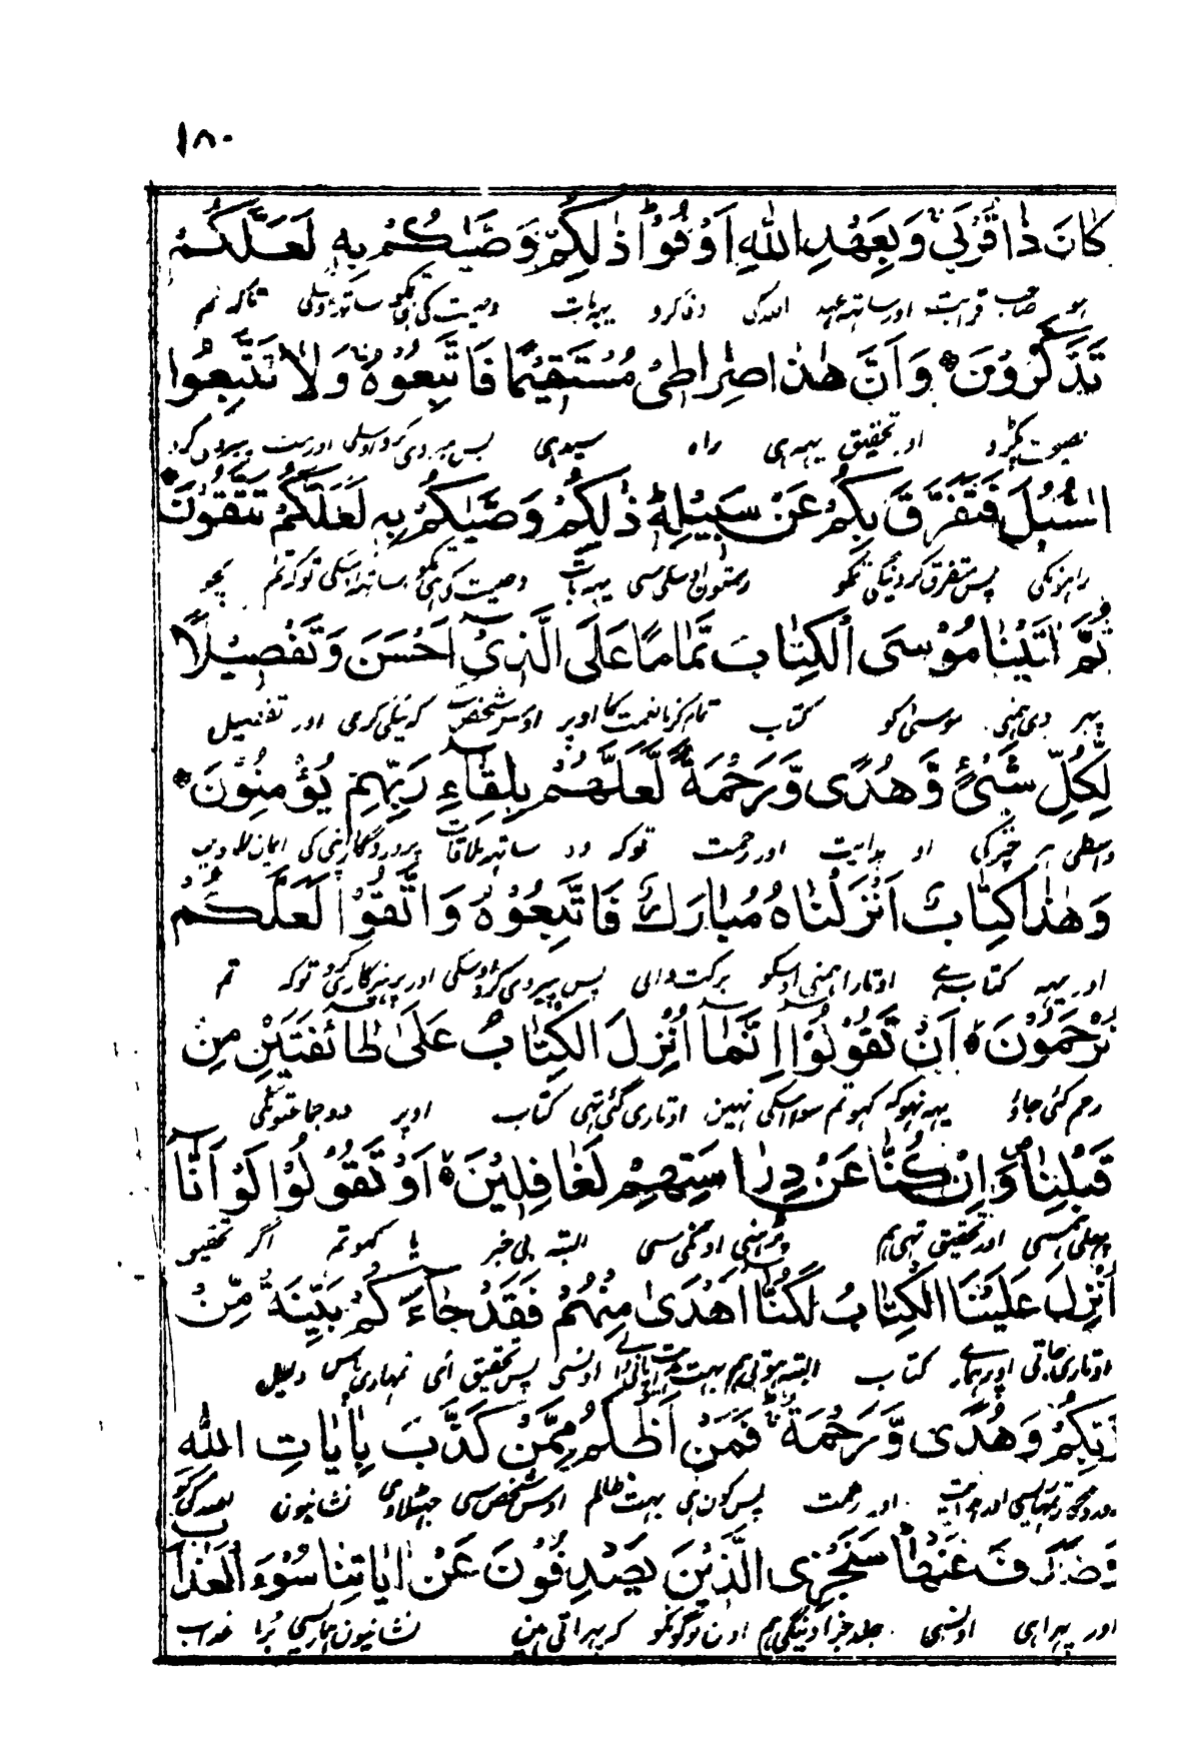 ۱۸۰
كَانَ ذَا قُرْبٰى وَبِعَهْدِ اللّٰهِ اَوْفُوْا ذٰلِكُمْ وَصّٰىكُمْ بِهٖ لَعَلَّكُمْ
ہو صاحب قرابت اور ساتہہ عہد اللہ کی وفا کرو یہہ بات وصیت کی ہی تمکو ساتہہ اوسکی تاکہ تم
تَذَكَّرُوْنَ وَاَنَّ هٰذَا صِرَاطِىْ مُسْتَقِيْمًا فَاتَّبِعُوْهُ وَلَا تَتَّبِعُوا
نصیحت پکڑو اور تحقیق یہہ ہی راہ سیدہی پس پیروی کرو اوسکی اور مت پیروی کرو
السُّبُلَ فَتَفَرَّقَ بِكُمْ عَنْ سَبِيْلِهٖ ذٰلِكُمْ وَصّٰىكُمْ بِهٖ لَعَلَّكُمْ تَتَّقُوْنَ
راہونکی پس متفرق کردینگی تمکو رستون اوسکی سی یہہ بات وصیت کی ہی تمکو ساتہہ اسکی توکہ تم بچو
ثُمَّ اٰتَيْنَا مُوْسَى الْكِتَابَ تَمَامًا عَلَى الَّذِىْ اَحْسَنَ وَتَفْصِيْلًا
پہر دی ہمنی موسیٰ کو کتاب تمام کرنا نعمت کا اوپر اوس شخص کہ نیکی کری اور تفصیل
لِّكُلِّ شَىْءٍ وَّهُدًى وَّرَحْمَةً لَّعَلَّهُمْ بِلِقَاءِ رَبِّهِمْ يُؤْمِنُوْنَ
واسطی ہر چیز کی اور ہدایت اور رحمت توکہ وہ ساتہہ ملاقات پروردگار اپنی کی ایمان لاویں
وَهٰذَا كِتَابٌ اَنْزَلْنَاهُ مُبَارَكٌ فَاتَّبِعُوْهُ وَاتَّقُوْا لَعَلَّكُمْ
اور یہہ کتاب ہے اوتارا ہمنی اوسکو برکت والی پس پیروی کرو اوسکی اور پرہیزکاری کرو توکہ تم
تُرْحَمُوْنَ اَنْ تَقُوْلُوْا اِنَّمَا اُنْزِلَ الْكِتَابُ عَلٰى طَائِفَتَيْنِ مِنْ
رحم کئی جاؤ یہہ نہو کہ کہو تم سوا اسکی نہین اوتاری گئی تہی کتاب اوپر دو جماعتونکی
قَبْلِنَا وَاِنْ كُنَّا عَنْ دِرَاسَتِهِمْ لَغَافِلِيْنَ اَوْ تَقُوْلُوْا لَوْ اَنَّا
پہلی ہمسی اور تحقیق تہی ہم پڑہنی اونکی سی البتہ بی خبر یا کہو تم اگر تحقیق
اُنْزِلَ عَلَيْنَا الْكِتَابُ لَكُنَّا اَهْدٰى مِنْهُمْ فَقَدْ جَاءَكُمْ بَيِّنَةٌ مِّنْ
اوتاری جاتی اوپر ہمارے کتاب البتہ ہوتی ہم بہت اونسی پس تحقیق آئی تمہاری پاس دلیل
رَّبِّكُمْ وَهُدًى وَّرَحْمَةٌ فَمَنْ اَظْلَمُ مِمَّنْ كَذَّبَ بِاٰيَاتِ اللّٰهِ
اور ہدایت اور رحمت پس کون ہی بہت ظالم اوس شخص سی جہٹلاوی نشانیون اللہ کی کو
وَصَدَفَ عَنْهَا سَنَجْزِى الَّذِيْنَ يَصْدِفُوْنَ عَنْ اٰيَاتِنَا سُوْءَ الْعَذَابِ
اور پہرا ہی اونسی جلد جزا دینگی ہم اون لوگونکو کہ پہراتی ہین نشانیون ہماری سی برا عذاب